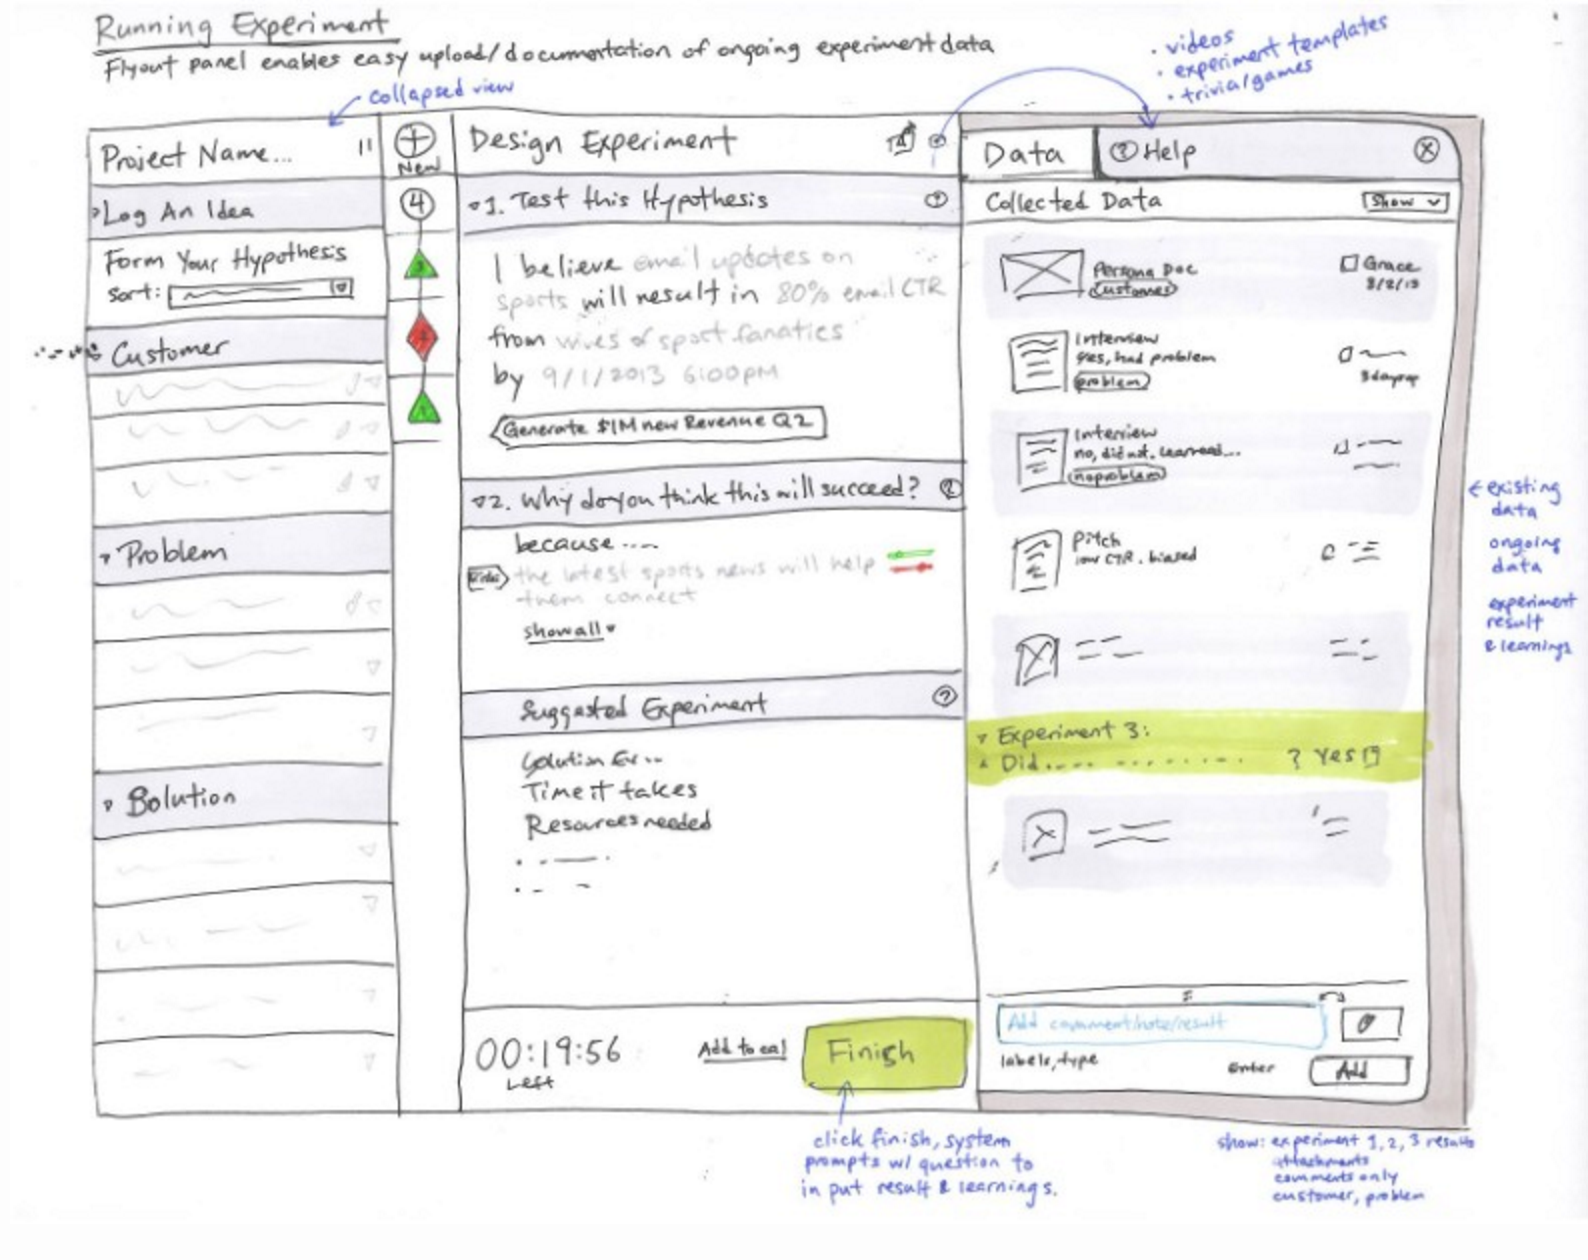 Running Experiment
Flyout panel enables easy upload/documentation of ongoing experiment data
collapsed view
• videos
• experiment templates
• trivia/games
Project Name...
Log An Idea
Form Your Hypothesis
Sort:
Customer
Problem
Solution
New
4
3
2
1
Design Experiment
1. Test this Hypothesis
I believe email updates on
sports will result in 80% email CTR
from wives of sport fanatics
by 9/1/2013 6:00PM
Generate $1M new Revenue Q2
2. Why do you think this will succeed?
because ....
the latest sports news will help
them connect
show all
Suggested Experiment
Solution Ex...
Time it takes
Resources needed
00:19:56
Left
Add to cal
Finish
click finish, system
prompts w/ question to
in put result & learnings.
Data
? Help
Collected Data
Show
Persona Doc
customer
Grace
Interview
yes, had problem
problem
Interview
no, did not. learned...
noproblem
Pitch
low CTR. biased
Experiment 3:
Did.... ? Yes
Add comment/note/result
labels, type
Enter
Add
← existing
data
ongoing
data
experiment
result
& learnings
show: experiment 1, 2, 3 results
attachments
comments only
customer, problem